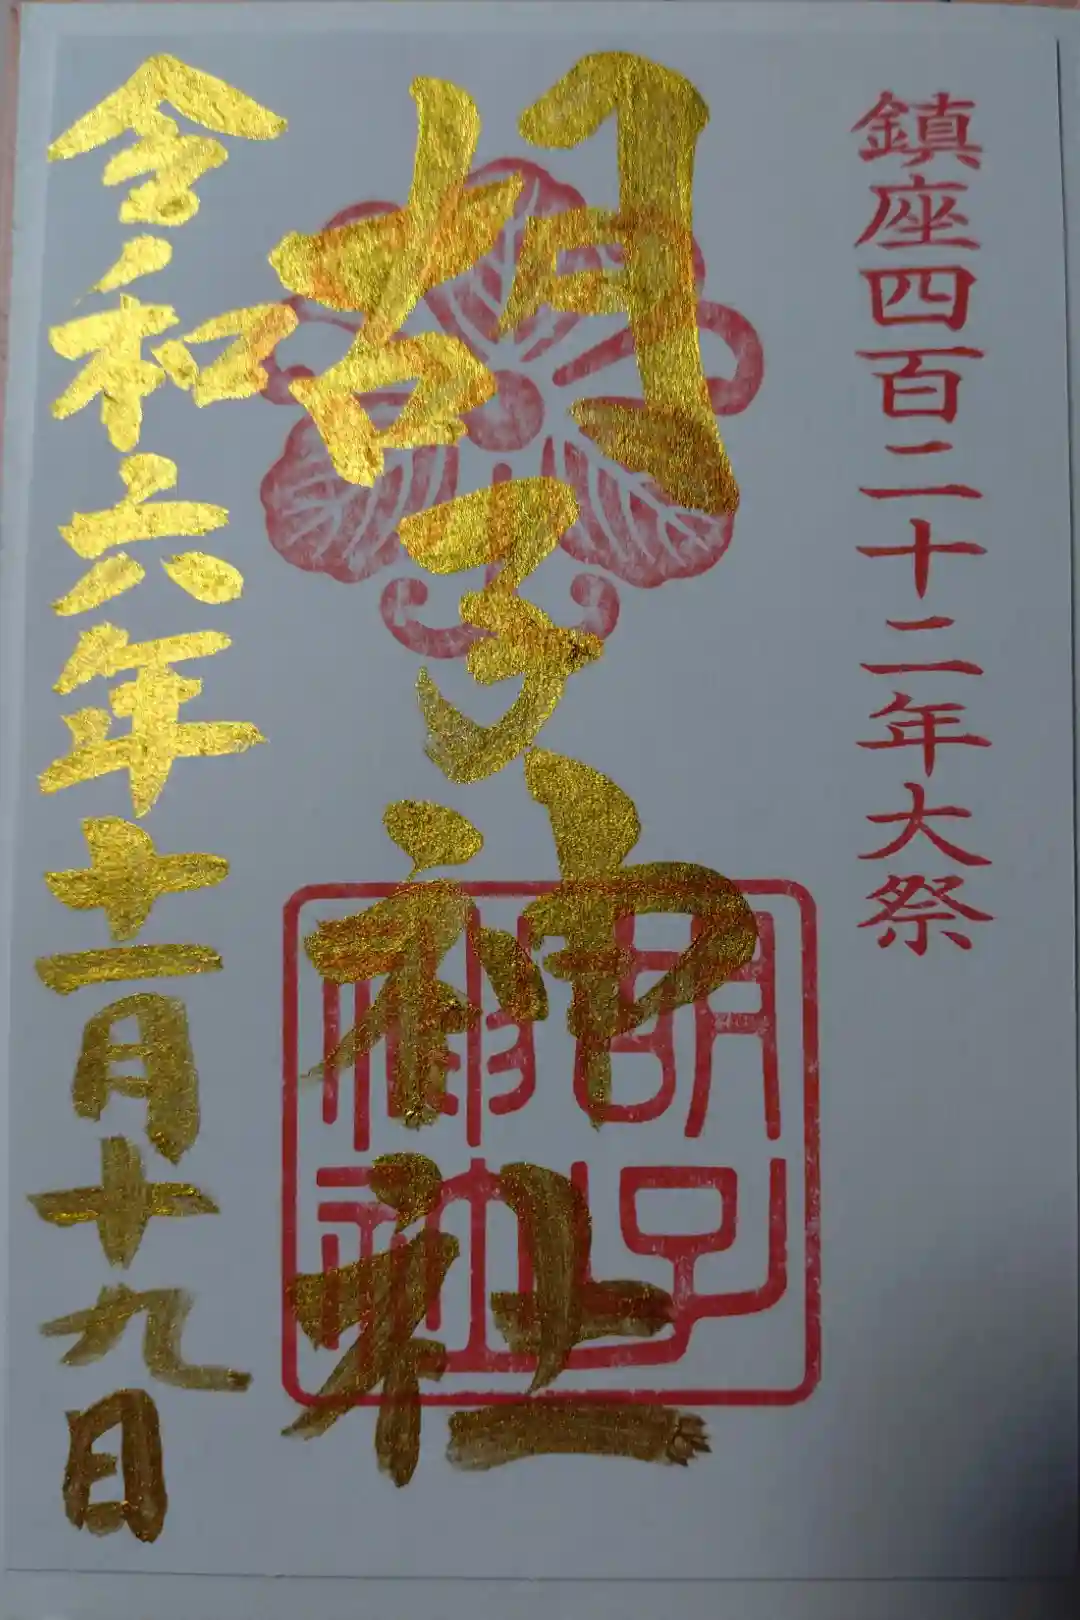 鎮座四百二十二年大祭
胡子神社
胡子神社
令和六年十一月十九日